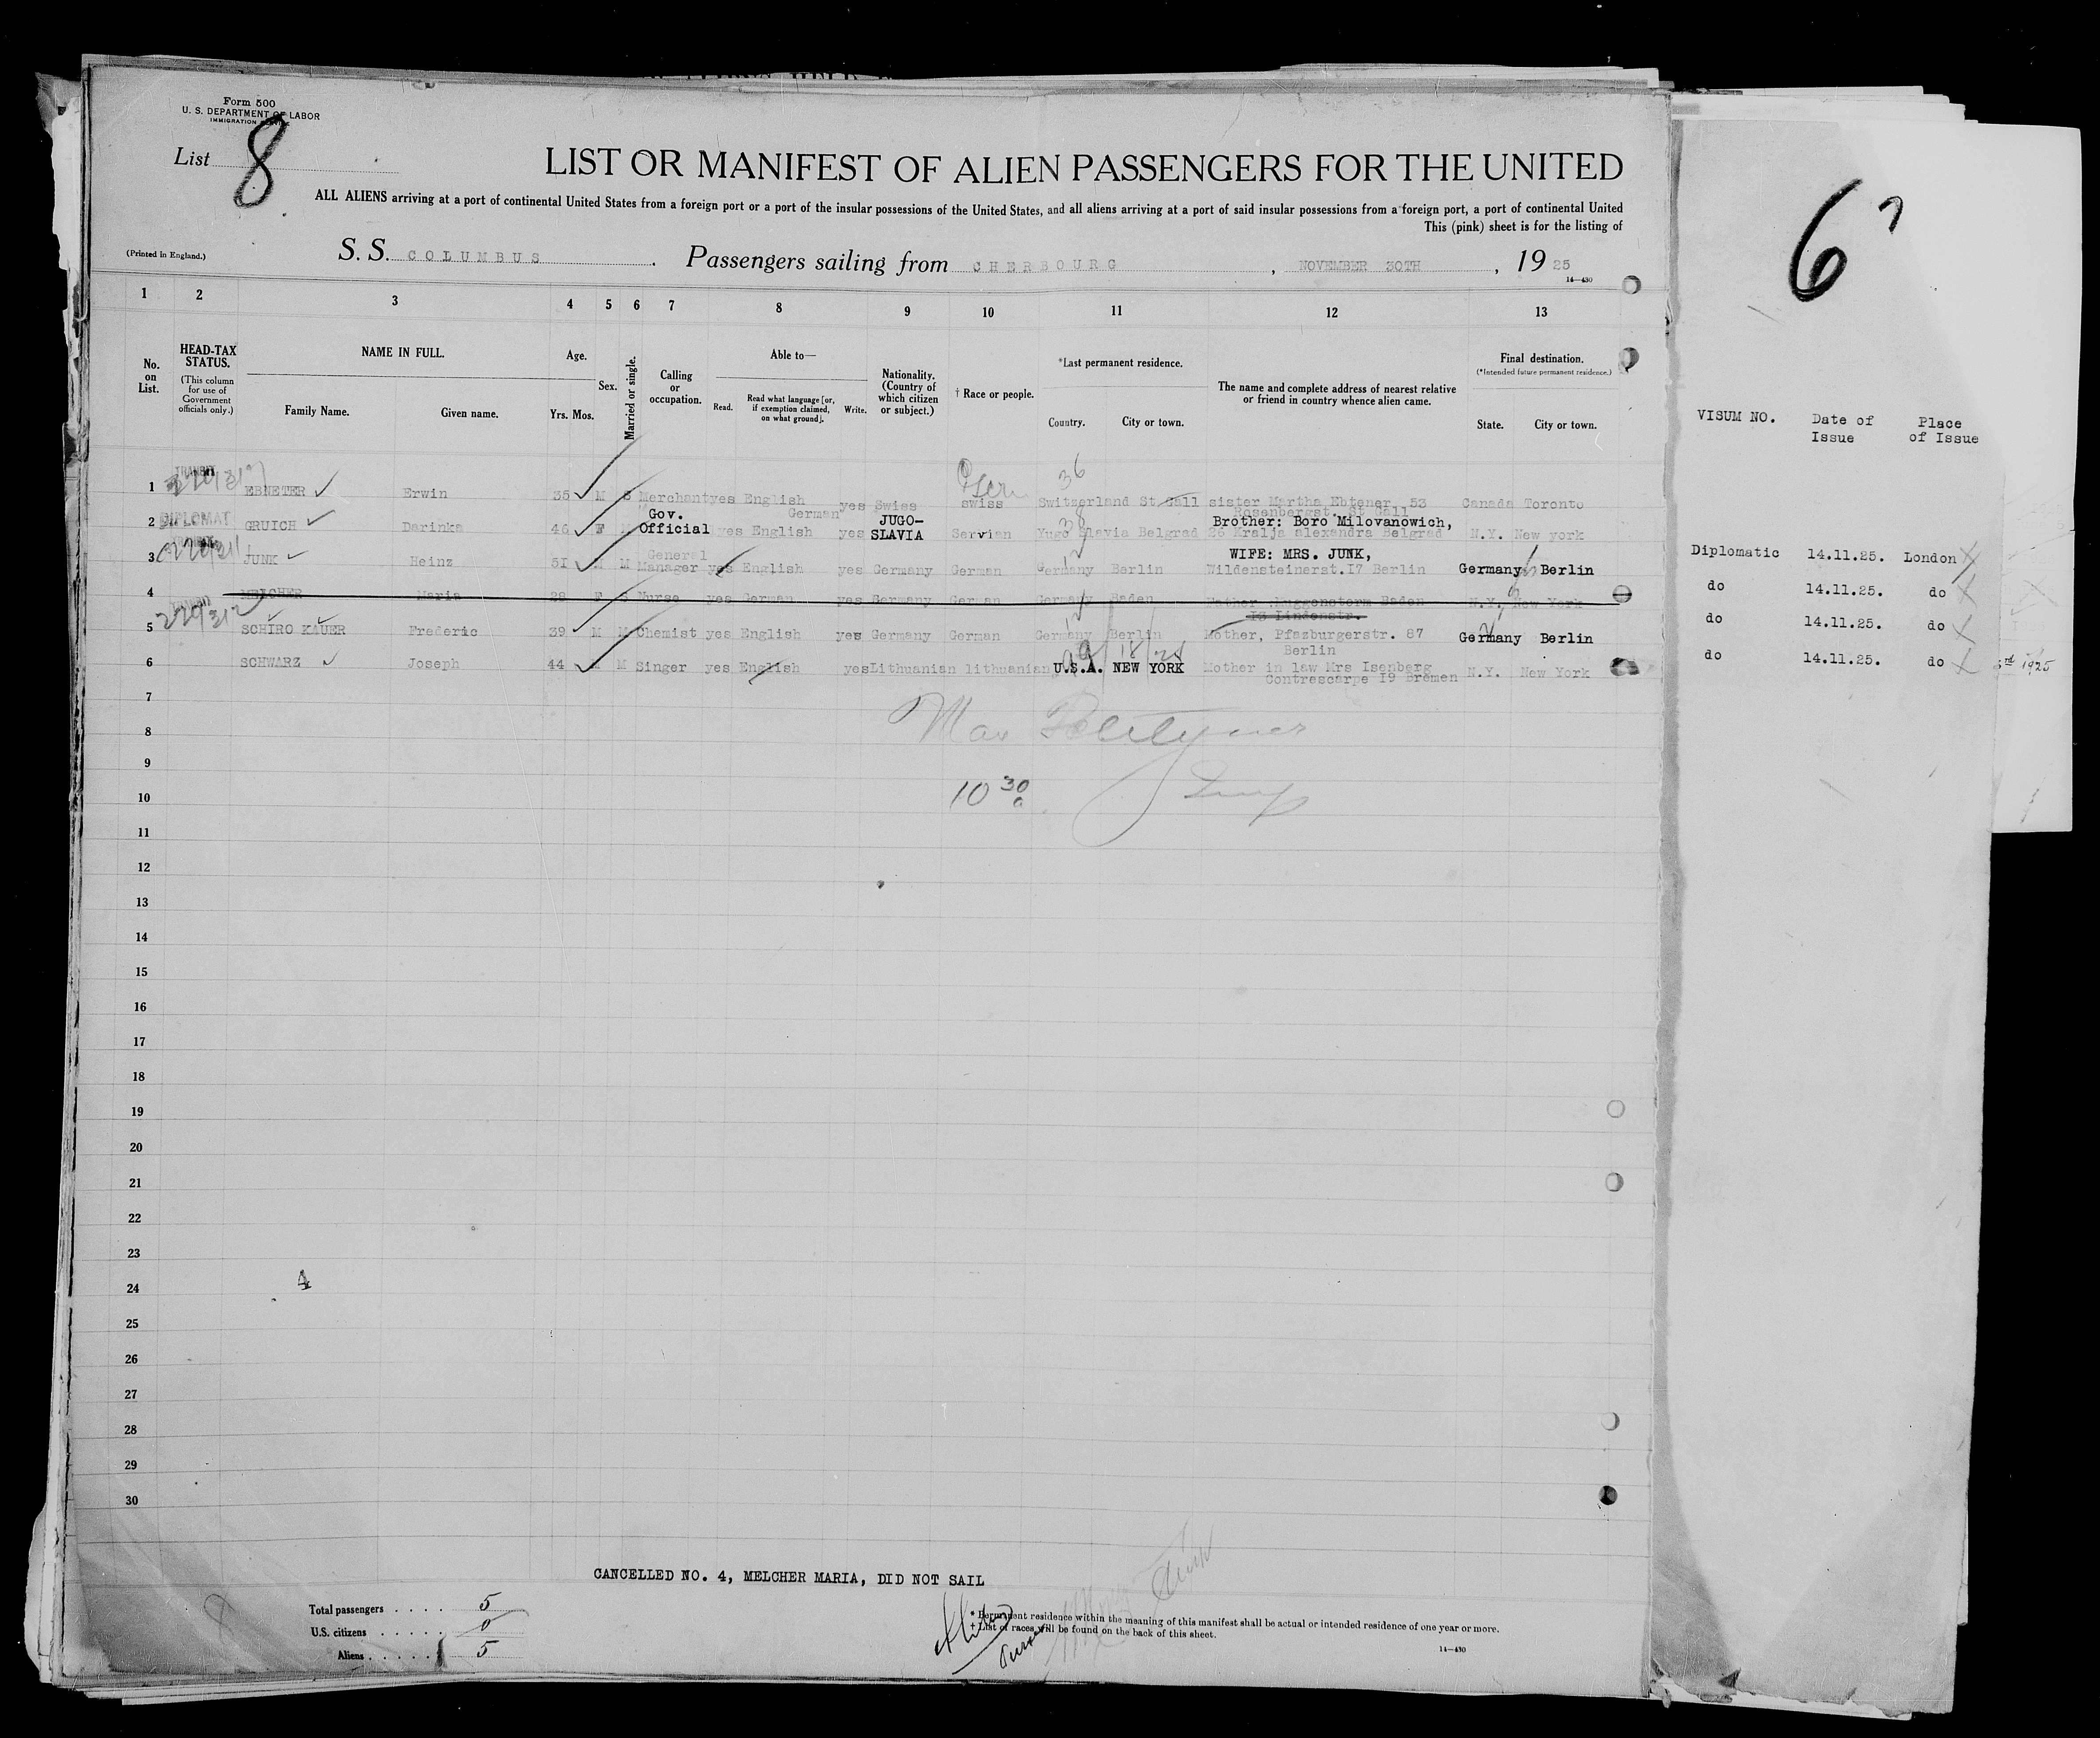 Form 500
U. S. DEPARTMENT OF LABOR
IMMIGRATION SERVICE
List 8
LIST OR MANIFEST OF ALIEN PASSENGERS FOR THE UNITED
ALL ALIENS arriving at a port of continental United States from a foreign port or a port of the insular possessions of the United States, and all aliens arriving at a port of said insular possessions from a foreign port, a port of continental United
This (pink) sheet is for the listing of
(Printed in England.)
S. S. COLUMBUS . Passengers sailing from CHERBOURG , NOVEMBER 30TH , 1925
14—430
1 2 3 4 5 6 7 8 9 10 11 12 13
No. on List.
HEAD-TAX STATUS.
(This column for use of Government officials only.)
NAME IN FULL.
Family Name. Given name.
Age.
Yrs. Mos.
Sex.
Married or single.
Calling or occupation.
Able to—
Read. Read what language [or, if exemption claimed, on what ground]. Write.
Nationality. (Country of which citizen or subject.)
† Race or people.
*Last permanent residence.
Country. City or town.
The name and complete address of nearest relative or friend in country whence alien came.
Final destination.
(*Intended future permanent residence.)
State. City or town.
1 TRANSIT EBNETER Erwin 35 M S Merchant yes English German yes Swiss swiss Switzerland St Gall sister Martha Ebtener 53 Rosenbergst. St Gall Canada Toronto
36
2 DIPLOMAT GRUICH Darinka 46 F M Gov. Official yes English yes JUGO-SLAVIA Servian Yugo Slavia Belgrad Brother: Boro Milovanowich, 26 Kralja alexandra Belgrad N.Y. New york
38
3 JUNK Heinz 51 M M General Manager yes English yes Germany German Germany Berlin WIFE: MRS. JUNK, Wildensteinerst.17 Berlin Germany Berlin
4 MELCHER Maria 28 F S Nurse yes German yes Germany German Germany Baden Father Muggensturm Baden N.Y. New York
13 Lindenstr.
5 SCHIRO KAUER Frederic 39 M M Chemist yes English yes Germany German Germany Berlin Mother, Pfazburgerstr. 87 Berlin Germany Berlin
6 SCHWARZ Joseph 44 M M Singer yes English yes Lithuanian lithuanian U.S.A. NEW YORK Mother in law Mrs Isenberg Contrescarpe 19 Bremen N.Y. New York
7
8
9
10
10 30 a
11
12
13
14
15
16
17
18
19
20
21
22
23
24
4
25
26
27
28
29
30
CANCELLED NO. 4, MELCHER MARIA, DID NOT SAIL
Total passengers . . . . 5
U.S. citizens . . . . . 0
Aliens . . . . . 5
* Permanent residence within the meaning of this manifest shall be actual or intended residence of one year or more.
† List of races will be found on the back of this sheet.
14—430
6
VISUM NO. Date of Issue Place of Issue
Diplomatic 14.11.25. London
do 14.11.25. do
do 14.11.25. do
do 14.11.25. do
3rd 1925